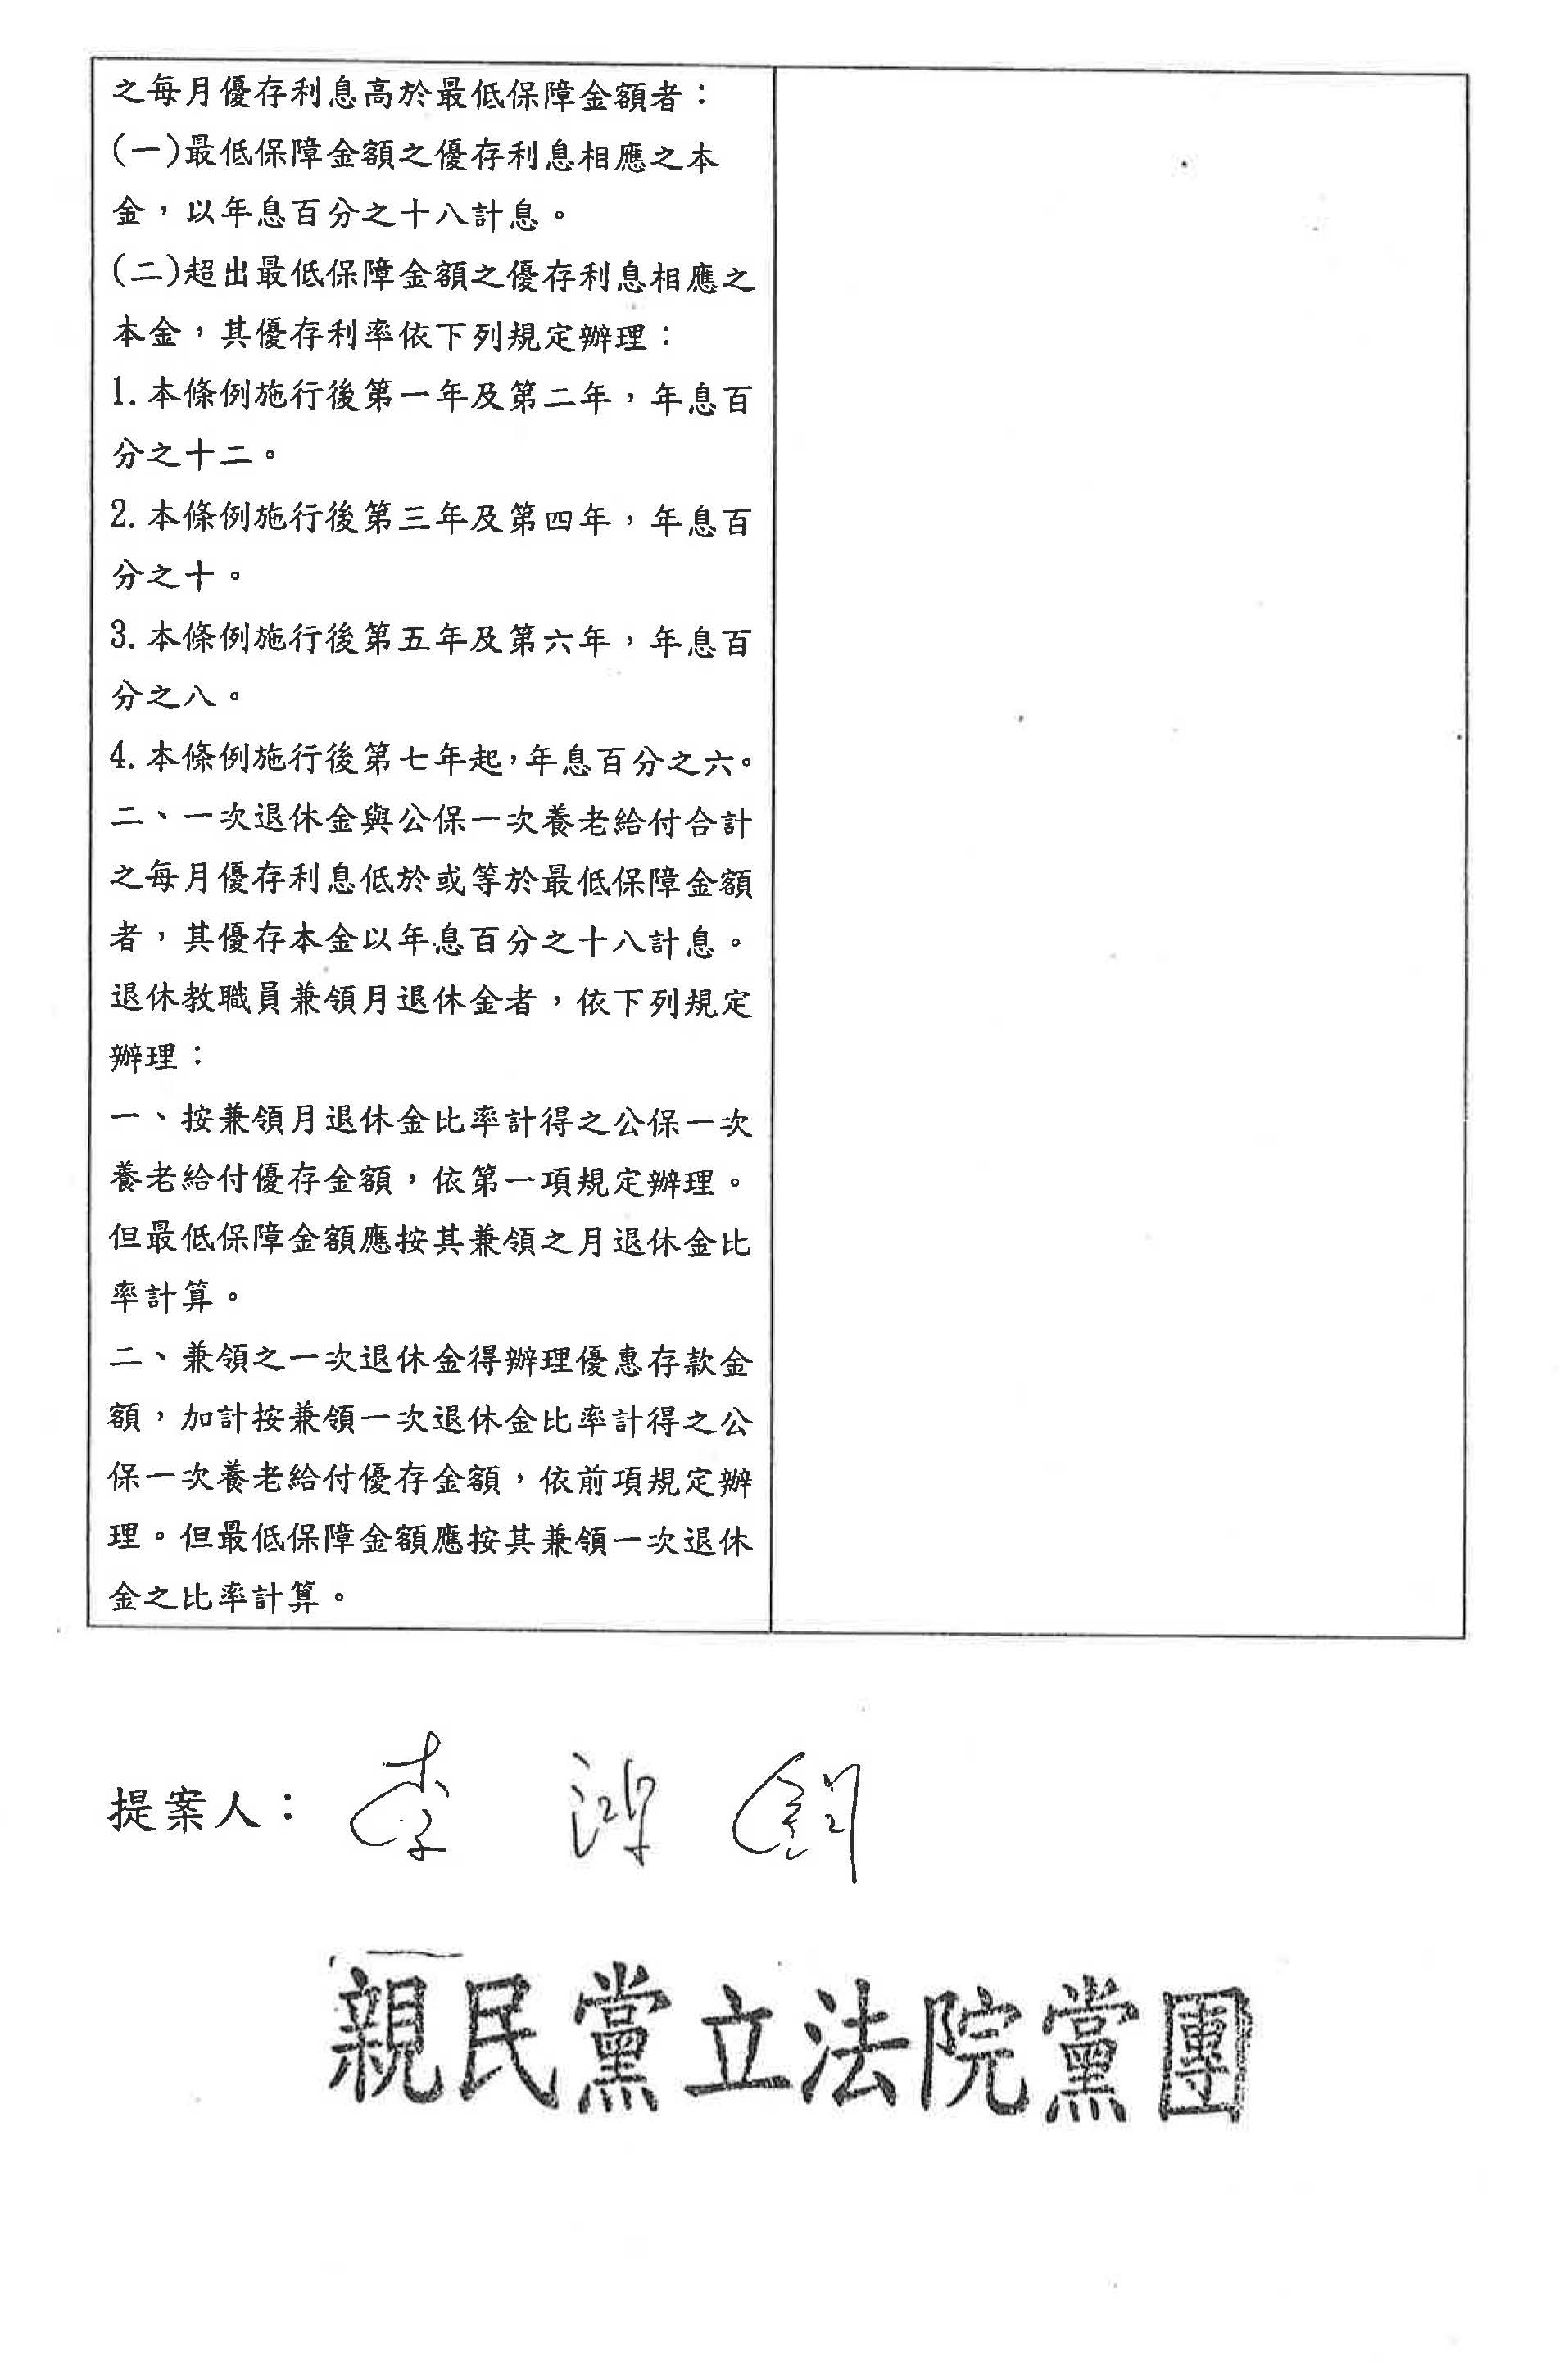 之每月優存利息高於最低保障金額者：
(一)最低保障金額之優存利息相應之本
金，以年息百分之十八計息。
(二)超出最低保障金額之優存利息相應之
本金，其優存利率依下列規定辦理：
1. 本條例施行後第一年及第二年，年息百
分之十二。
2. 本條例施行後第三年及第四年，年息百
分之十。
3. 本條例施行後第五年及第六年，年息百
分之八。
4. 本條例施行後第七年起，年息百分之六。
二、一次退休金與公保一次養老給付合計
之每月優存利息低於或等於最低保障金額
者，其優存本金以年息百分之十八計息。
退休教職員兼領月退休金者，依下列規定
辦理：
一、按兼領月退休金比率計得之公保一次
養老給付優存金額，依第一項規定辦理。
但最低保障金額應按其兼領之月退休金比
率計算。
二、兼領之一次退休金得辦理優惠存款金
額，加計按兼領一次退休金比率計得之公
保一次養老給付優存金額，依前項規定辦
理。但最低保障金額應按其兼領一次退休
金之比率計算。
提案人：李鴻鈞
親民黨立法院黨團